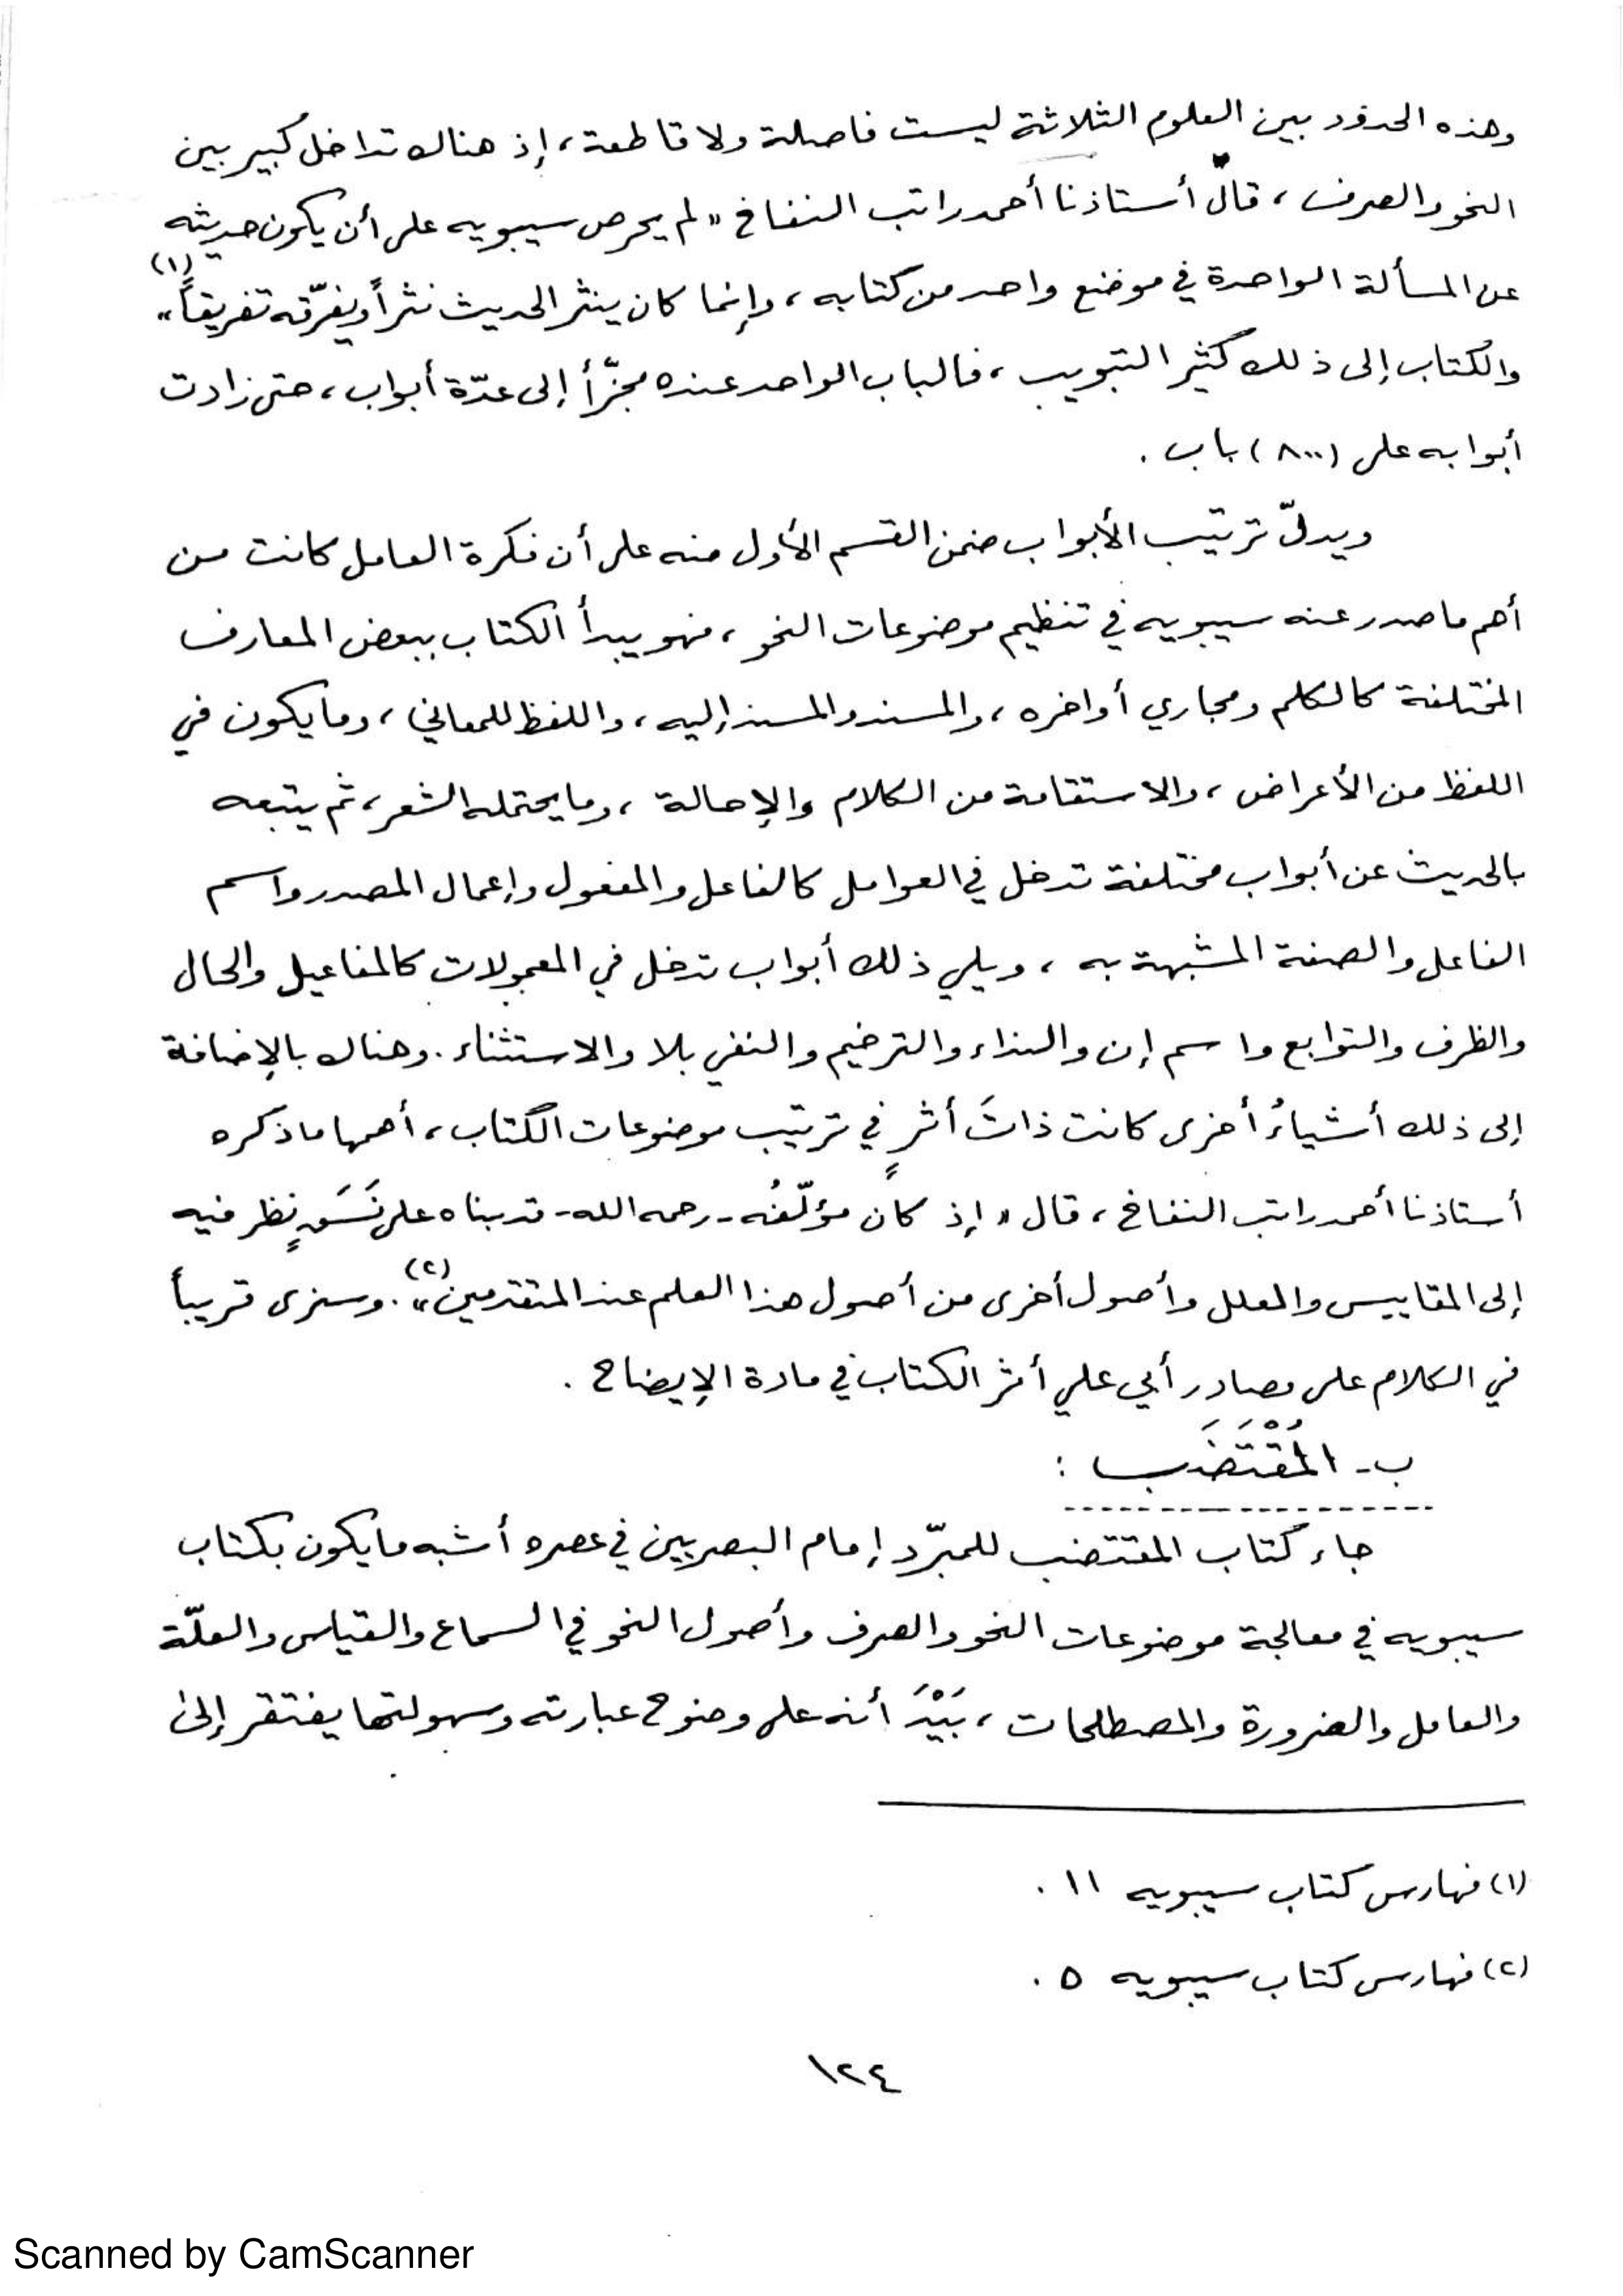 وهذه الحدود بين العلوم الثلاثة ليست فاصلة ولا قاطعة، إذ هناك تداخل كبير بين
النحو والصرف، قال أستاذنا أحمد راتب النفاخ «لم يحرص سيبويه على أن يكون حديثه
عن المسألة الواحدة في موضع واحد من كتابه، وإنما كان ينثر الحديث نثراً ويفرّقه تفريقاً»(١)
والكتاب إلى ذلك كثير التبويب، فالباب الواحد عنده مجزّأ إلى عدّة أبواب، حتى زادت
أبوابه على (٨٠٠) باب .
ويدلّ ترتيب الأبواب ضمن القسم الأول منه على أن فكرة العامل كانت من
أهم ما صدر عنه سيبويه في تنظيم موضوعات النحو، فهو يبدأ الكتاب ببعض المعارف
المختلفة كالكلم ومجاري أواخره، والمسند والمسند إليه، واللفظ للمعاني، وما يكون في
اللفظ من الأعراض، والاستقامة من الكلام والإحالة، وما يحتمله الشعر، ثم يتبعه
بالحديث عن أبواب مختلفة تدخل في العوامل كالفاعل والمفعول وإعمال المصدر واسم
الفاعل والصفة المشبهة به، ويلي ذلك أبواب تدخل في المعمولات كالمفاعيل والحال
والظرف والتوابع واسم إن والنداء والترخيم والنفي بلا والاستثناء. وهناك بالإضافة
إلى ذلك أشياءُ أخرى كانت ذاتَ أثرٍ في ترتيب موضوعات الكتاب، أهمها ما ذكره
أستاذنا أحمد راتب النفاخ، قال «إذ كان مؤلّفُه - رحمه الله - قد بناه على نَسَقٍ نظر فيه
إلى المقاييس والعلل وأصول أخرى من أصول هذا العلم عند المتقدمين»(٢). وسنرى قريباً
في الكلام على مصادر أبي علي أثر الكتاب في مادة الإيضاح .
ب - المُقْتَضَب :
جاء كتاب المقتضب للمبرّد إمام البصريين في عصره أشبه ما يكون بكتاب
سيبويه في معالجة موضوعات النحو والصرف وأصول النحو في السماع والقياس والعلّة
والعامل والضرورة والمصطلحات، بَيْدَ أنه على وضوح عبارته وسهولتها يفتقر إلى
(١) فهارس كتاب سيبويه ١١ .
(٢) فهارس كتاب سيبويه ٥ .
١٢٤
Scanned by CamScanner